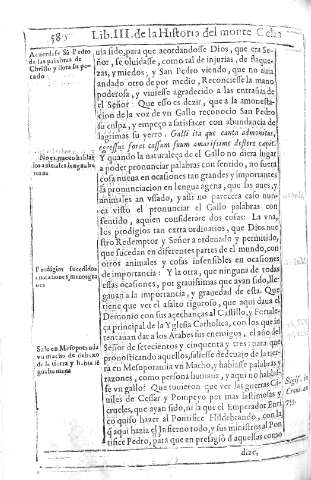 58
Lib. III. de la Historia del monte Celia
Acuerdase Sã Pedro
de las palabras de
Christo y llora su pe-
cado
uia sido, para que acordandosse Dios, que era Se-
ñor, se oluidasse, como tal de injurias, de flaque-
zas, y miedos; y San Pedro viendo, que no auia
andado otro de por medio, Reconociesse la mano
poderosa, y viuiesse agradecido a las entrañas de
el Señor: Que esso es dezir, que a la amonesta-
cion de la voz de vn Gallo reconocio San Pedro
su culpa, y empeço a satisfacer con abundancia de
lagrimas su yerro. Galli ita que cantu admonitus,
egressus foras cassum suum amarissime destere capit.
Y quando la naturaleça de el Gallo no diera lugar
a poder pronunciar palabras con sentido, no fuera
cosa nueua en ocasiones tan grandes y importantes
la pronunciacion en lengua agena, que las aues, y
animales an vssado, y assi no pareçera caso nun-
ca visto el pronunciar el Gallo palabras con
sentido, aquien considerare dos cosas: La vna,
los prodigios tan extra ordinarios, que Dios nue-
stro Redemptor y Señor a ordenado y permitido,
que sucedan en diferentes partes de el mundo, con
otros animales y cosas insensibles en ocasiones
de importancia: Y la otra, que ninguna de todas
essas ocasiones, por grauissimas que ayan sido, lle-
garian a la importancia, y grauedad de esta. Que
tiene que ver el asalto riguroso, que aqui daua el
Demonio con sus açechanças al Castillo, y Fortale-
ça principal de la Yglesia Catholica, con los que in-
tentauan dar a los Arabes sus enemigos, el año del
Señor de setecientos y cinquenta y tres: para que
pronosticando aquellos, saliesse de debaxo de la tier-
ra en Mesopotamia vn Macho, y hablasse palabras y
razones, como persona humana, y aqui no habla-
se vn gallo? Que tuuieron que ver las guerras Ci-
uiles de Cesar y Pompeyo por mas lastimosas y
crueles, que ayan sido, ni la que el Emperador Enri-
co quiso hazer al Pontifice Hildebrando, con la
q̃ aqui hazia el Infierno todo, y sus ministros al Pon-
tifice Pedro, para que en presagio d̃ aquellas como
dize,
animales lengua hu-
mana
Prodigios sucedidos
Sale en Mesopotamia
vn macho de debaxo
de la tierra y habla lẽ
gua humana
Sigis. in